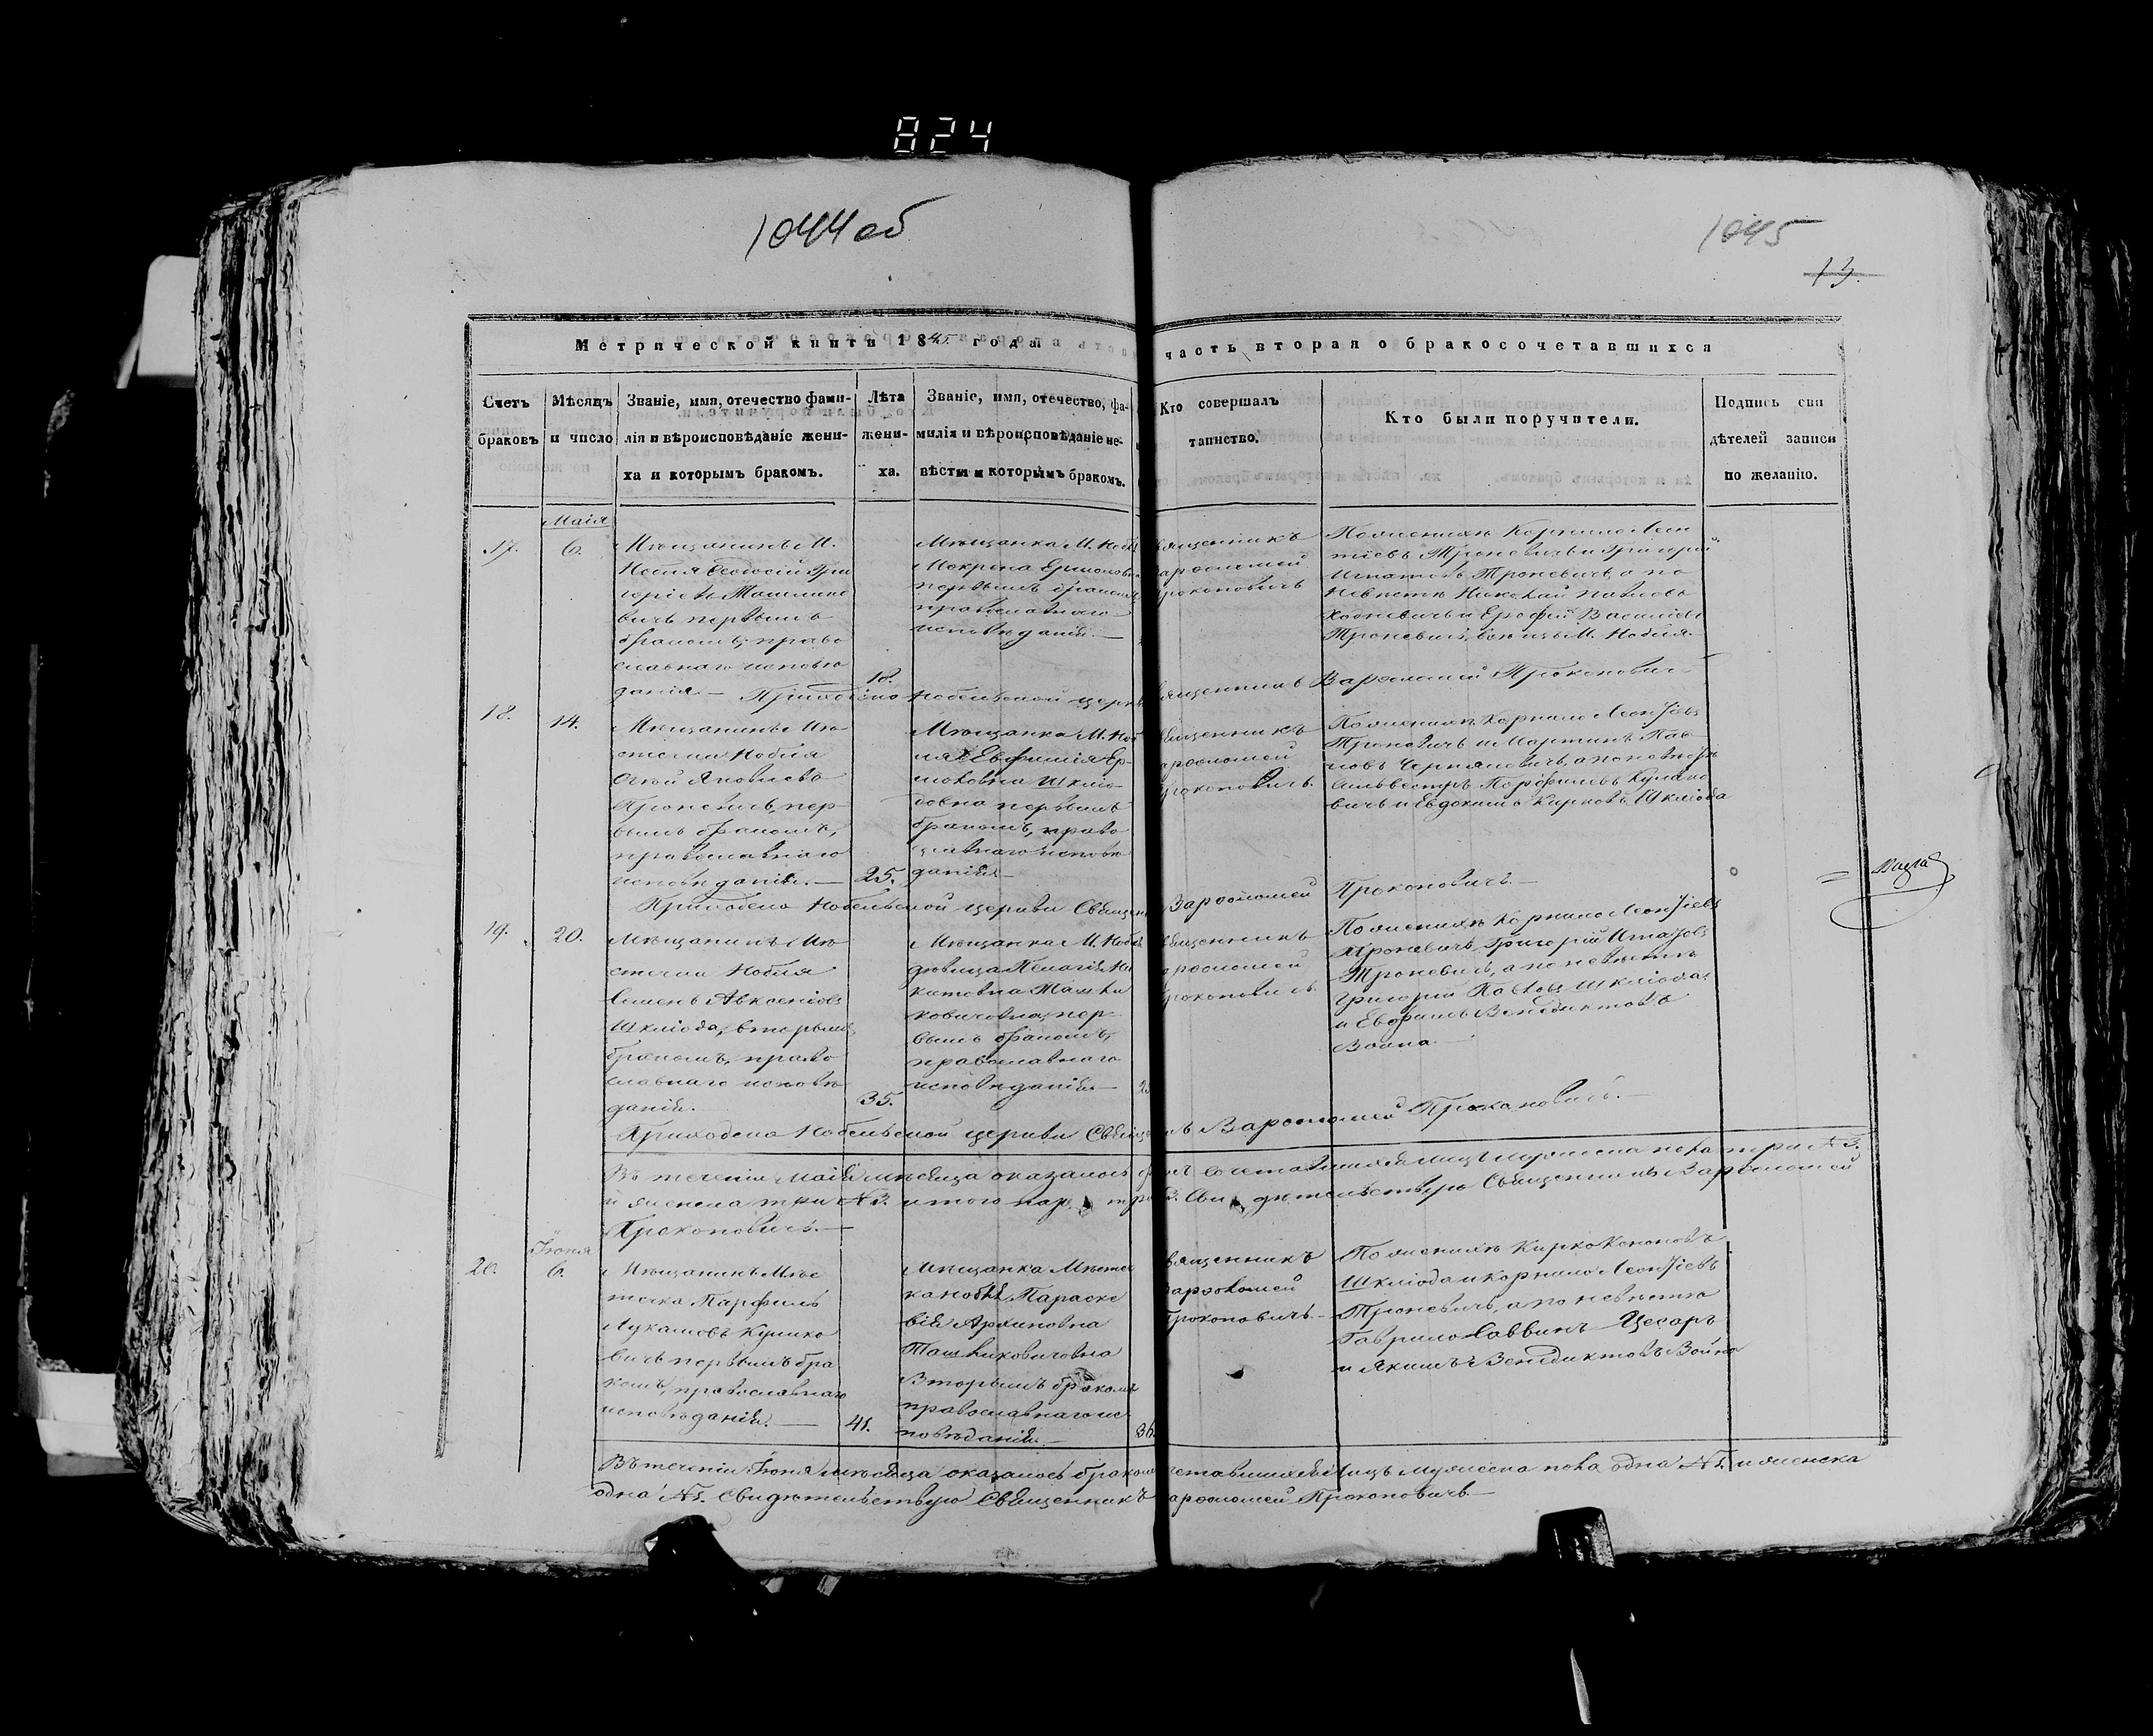 824
1044 об
1045
13.
Метрической книги 1845 года часть вторая о бракосочетавшихся
Счетъ браковъ
Мѣсяцъ и число
Званіе, имя, отечество фами-
лія и вѣроисповѣданіе жени-
ха и которымъ бракомъ.
Лѣта
жени-
ха.
Званіе, имя, отечество, фа-
милія и вѣроисповѣданіе не-
вѣсты и которымъ бракомъ.
Кто совершалъ
таинство.
Кто были поручители.
Подпись сви
дѣтелей записи
по желанію.
Маія
17.
6.
Мѣщанинъ М.
Нобля Ѳеодосій Гри
горіевъ
вичъ первымъ
бракомъ, право
славнаго исповѣ
данія.—
18.
Мѣщанка М. Нобля
Мокрина Ермолов
первымъ бракомъ
православнаго
исповѣданія.—
Священникъ
Варѳоломей
Прокоповичъ
По женихѣ Корнило Леон
тіевъ Троневичъ и Григорій
Игнатовъ Троневичъ, а по
невѣстѣ Николай Павловъ
Ходневичъ и Ерофей Василіевъ
Троневичъ, всѣ изъ М. Нобля.
Приходско Нобельской церкви Священникъ Варѳоломей Прокопович
18.
14.
Мѣщанинъ Мѣ
стечка Нобля
Яковлевъ
Троневичъ, пер
вымъ бракомъ,
православнаго
исповѣданія.—
25.
Мѣщанка М. Ноб
ля Евфимія Ер-
моловна Шклѣо
довна первымъ
бракомъ, право
славнаго исповѣ
данія—
Священникъ
Варѳоломей
Прокоповичъ.
По женихѣ Корнило Леонтіевъ
Троневичъ и Мартинъ Пав
ловъ Чернявичъ, а по невѣстѣ
Сильвестръ Порфиліевъ Кулико
вичъ и Евдокимъ Кирковъ Шклiода
Приходско Нобельской церкви Священ Варѳоломей Прокоповичъ.—
19.
20.
Мѣщанинъ Мѣ
стечка Нобля
Семенъ Авксеніовъ
Шклiода, вторымъ
бракомъ, право
славнаго исповѣ
данія.
35.
Мѣщанка М. Нобля
дѣвица Пелагія Ни
китовна Ташли
ковичовна, пер-
вымъ бракомъ,
православнаго
исповѣданія—
Священникъ
Варѳоломей
Прокоповичъ
По женихѣ Корнило Леонтіевъ
Троневичъ, Григорій Игнатовъ
Троневичъ, а по невѣстѣ
Григорій Павловъ Шклiода
и Евфимъ Венедиктовъ
Война.—
Приходско Нобельской церкви Священникъ Варѳоломей Прокоповичъ.—
Въ теченіи Маія мѣсяца оказалось бракосочетавшихся лицъ мужеска пола три №3.
и женска три №3. итого пар три 3. Свидѣтельствую Священникъ Варѳоломей
Прокоповичъ.—
Іюня
20.
6.
Мѣщанинъ Мѣс
течка Парфилъ
Лукашовъ Кулико
вичъ первымъ бра
комъ, православнаго
исповѣданія.—
41.
Мѣщанка Мѣстеч
ка Нобля Параске
вія Архиповна
Ташликовичовна
Вторымъ бракомъ
православнаго ис
повѣданія—
36.
Священникъ
Варѳоломей
Прокоповичъ.
По женихѣ Кирко Кононовъ
Шклiода и Корнило Леонтіевъ
Троневичъ, а по невѣстѣ
Гаврило Саввинъ Цесаръ
и Якимъ Венедиктовъ Война
Въ теченіи Іюня мѣсяца оказалось бракосочетавшихся лицъ мужеска пола одна №1. и женска
одна №1. Свидѣтельствую Священникъ Варѳоломей Прокоповичъ.—